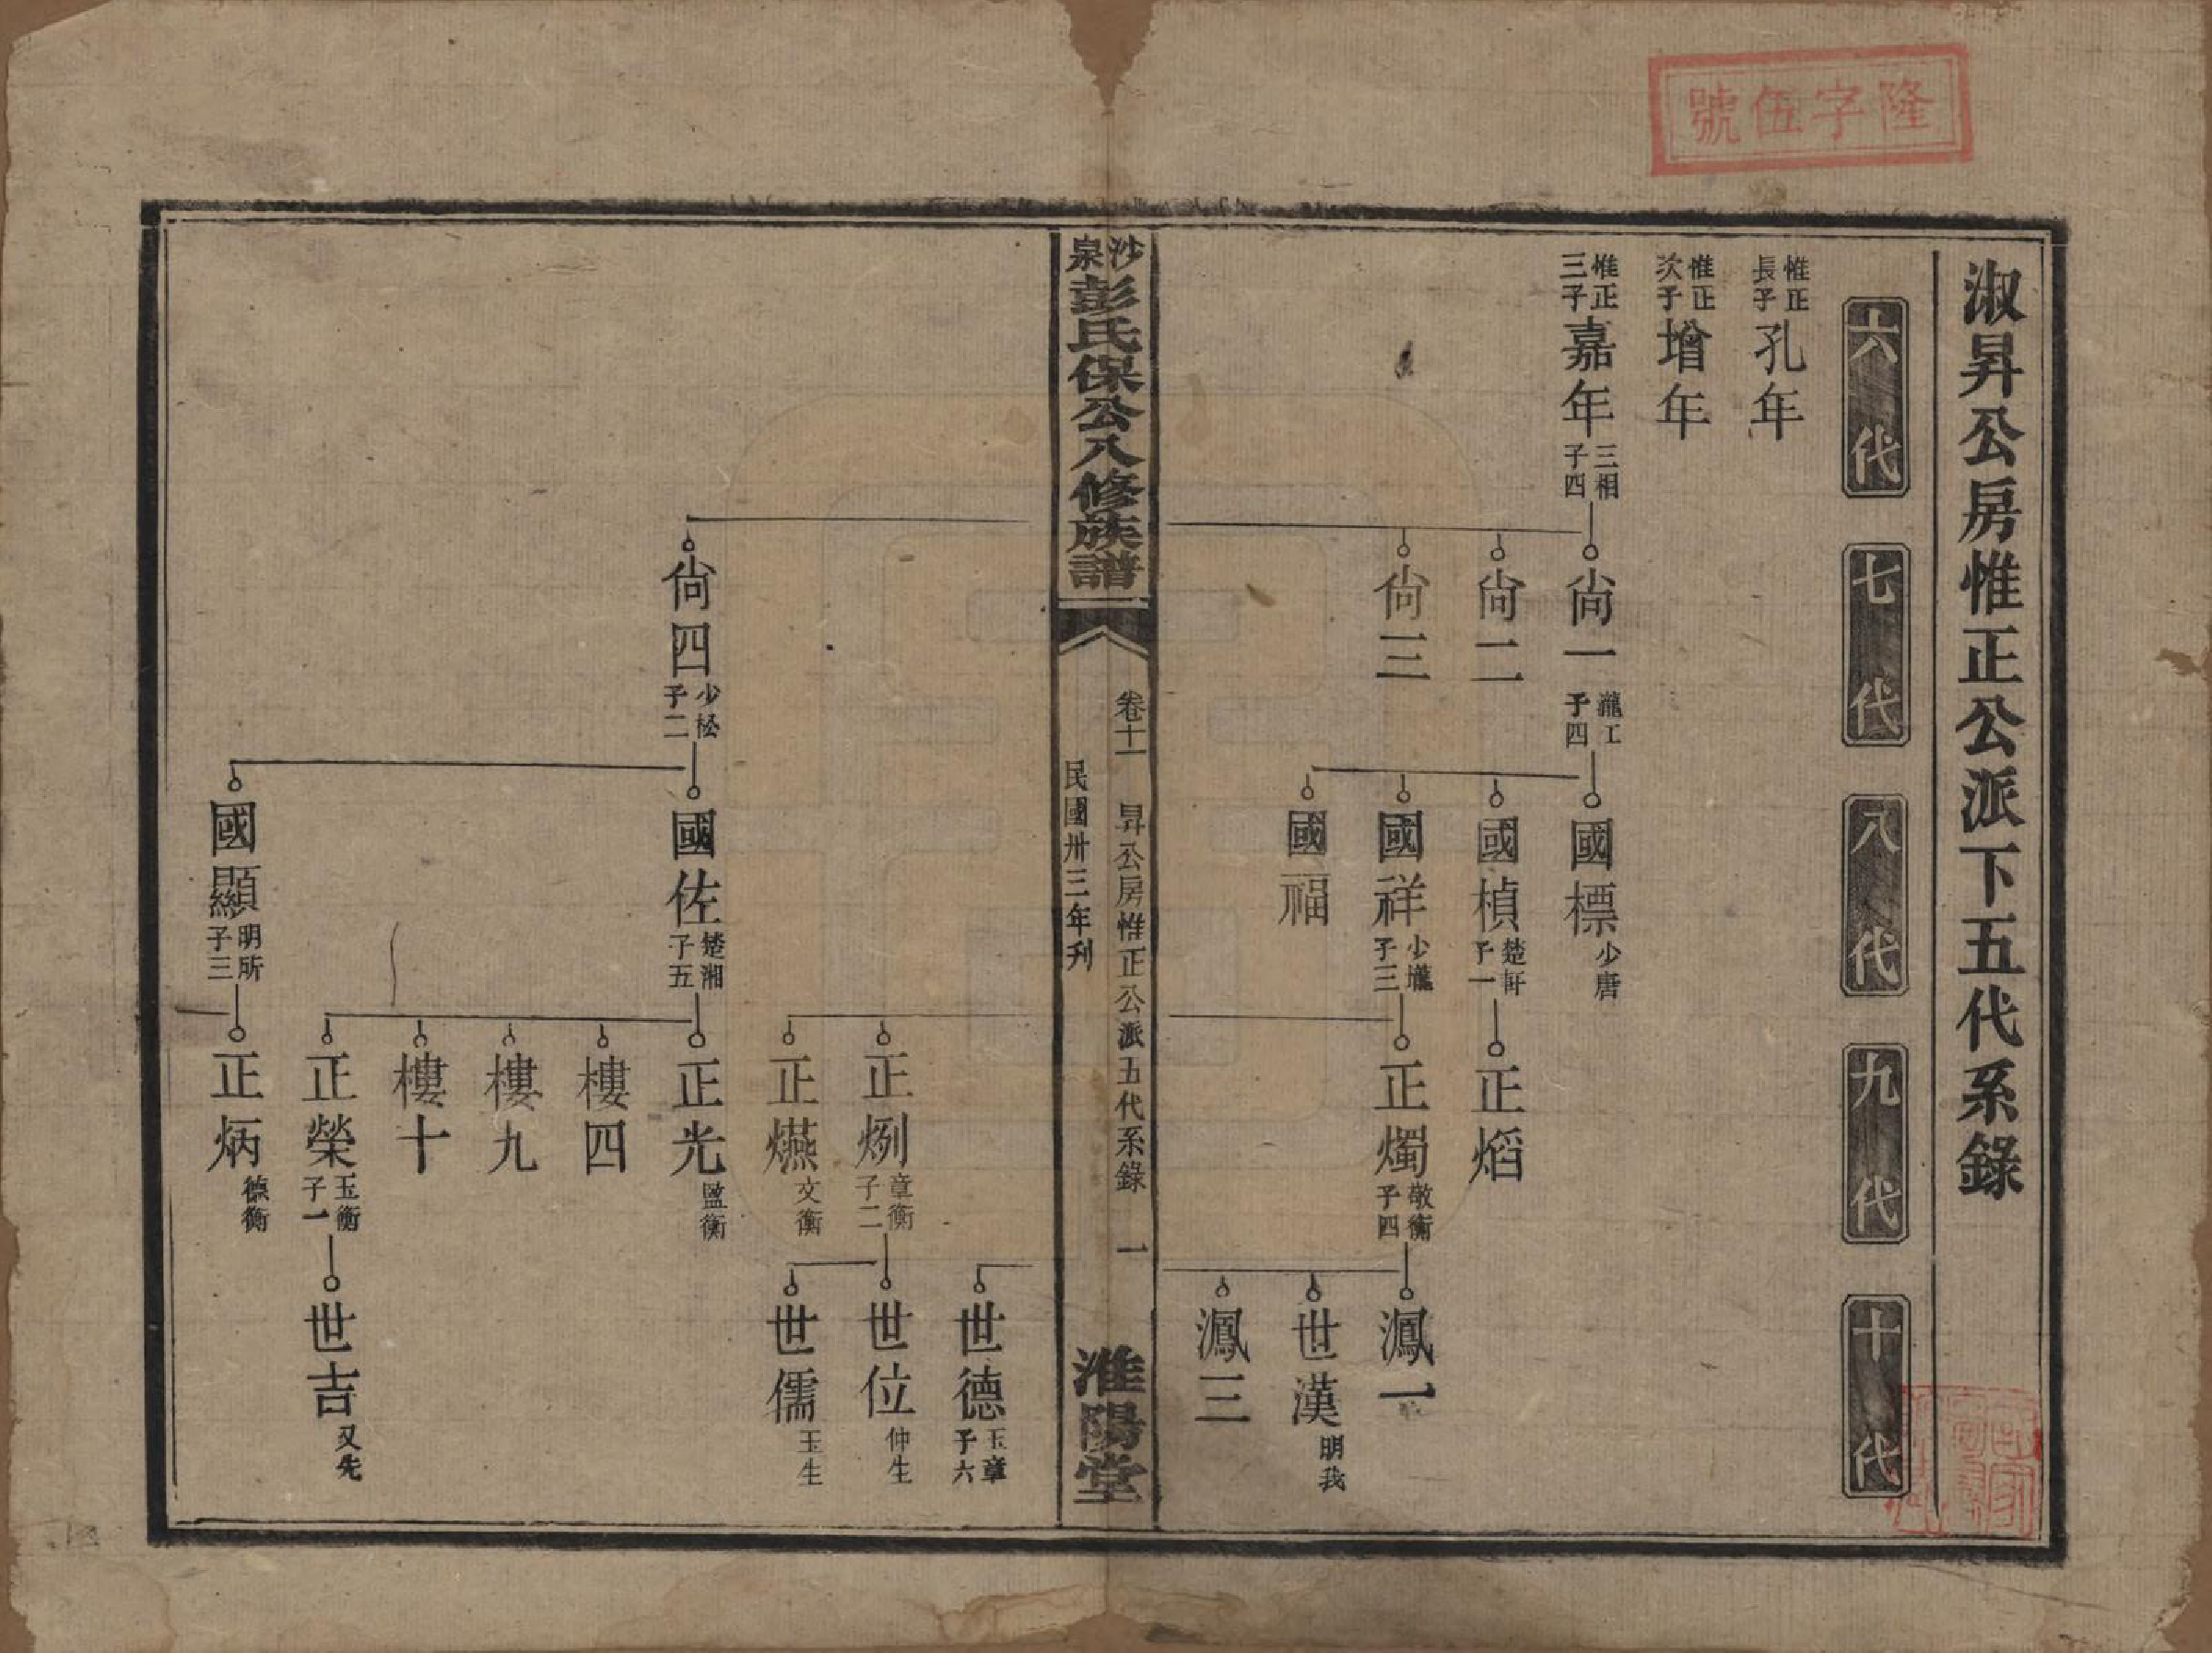 隆字伍號
淑昇公房惟正公派下五代系錄
六代
七代
八代
九代
十代
惟正長子 孔年
惟正次子 增年
惟正三子 嘉年 三相 子四
尙一 瀧工 子四
國標 少唐
尙二
國楨 楚軒 子一
正熖
尙三
國祥 少瀧 子三
正燭 敬衡 子四
鳳一
國福
世漢 明我
鳳三
沙泉彭氏保公八修族譜
卷十一 昇公房惟正公派五代系錄 一
民國卅三年刋
淮陽堂
世德 玉章 子六
正烈 章衡 子二
世位 仲生
正燕 文衡
世儒 玉生
尙四 少松 子二
國佐 楚湘 子五
正光 監衡
樓四
樓九
樓十
正榮 玉衡 子一
世吉 又先
國顯 明所 子三
正炳 德衡